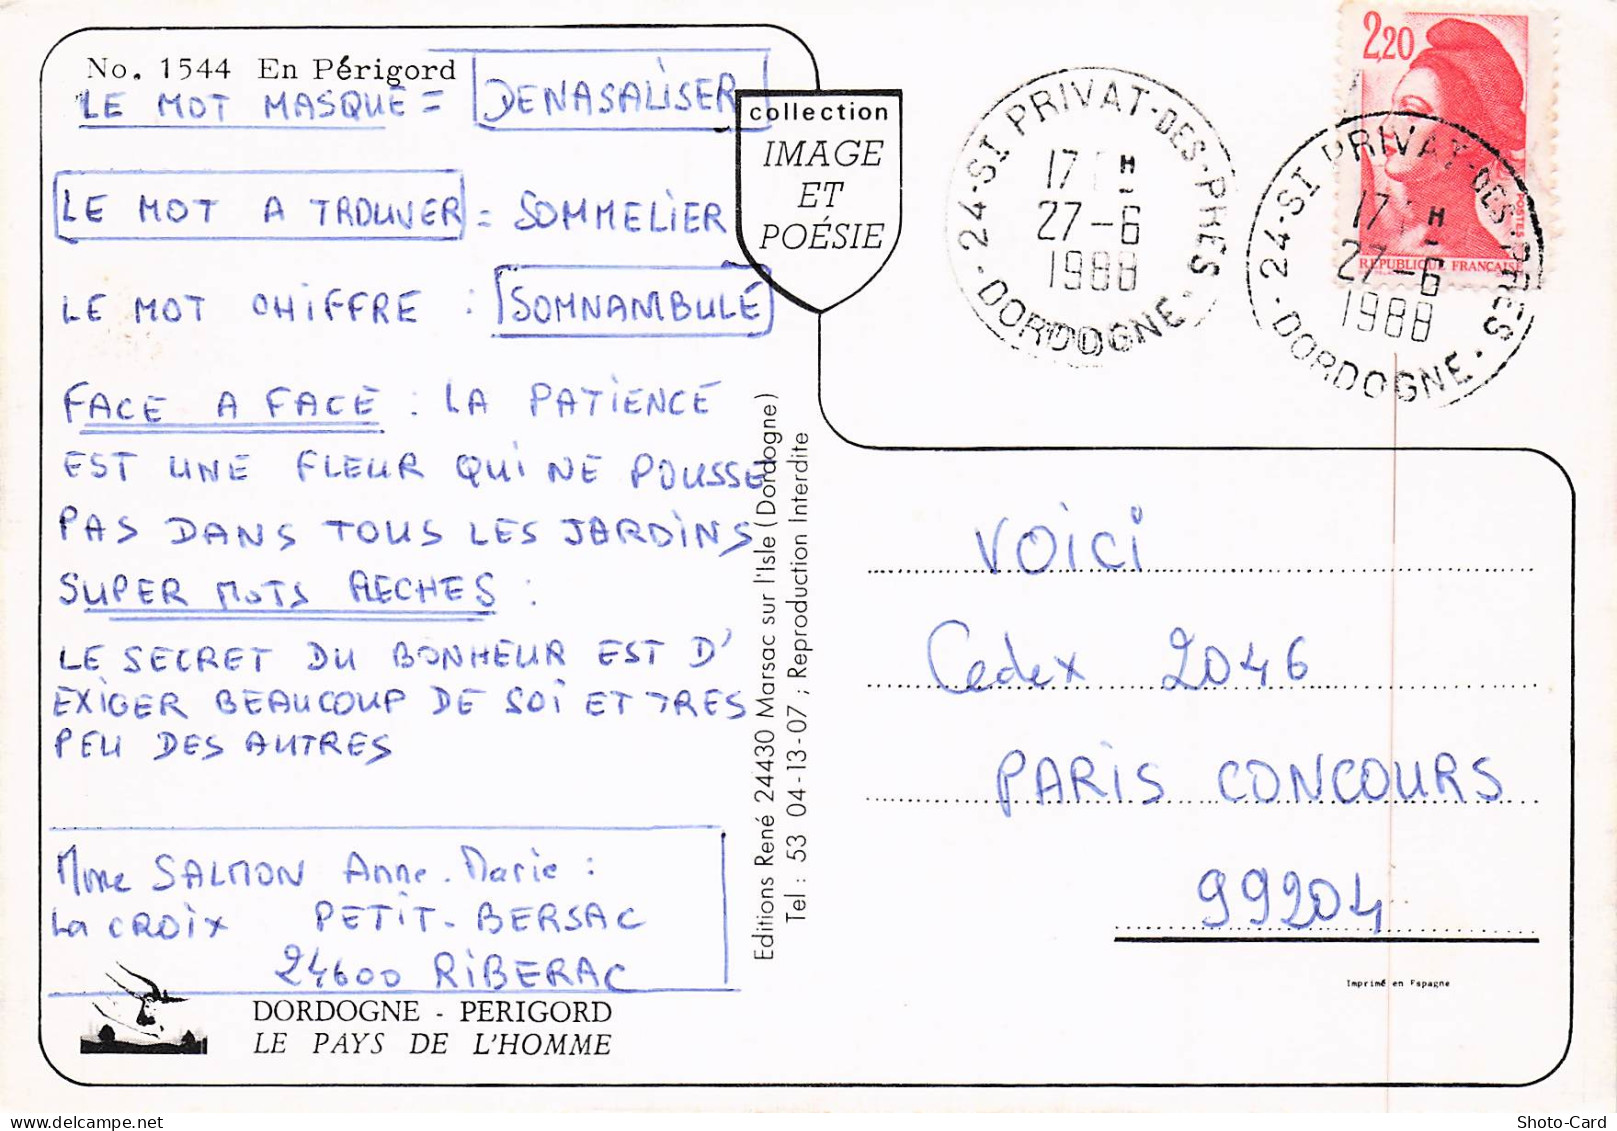 No. 1544 En Périgord
LE MOT MASQUE = DENASALISER
LE MOT A TROUVER = SOMMELIER
LE MOT CHIFFRE : SOMNAMBULE
FACE A FACE : LA PATIENCE
EST UNE FLEUR QUI NE POUSSE
PAS DANS TOUS LES JARDINS
SUPER MOTS FLECHES :
LE SECRET DU BONHEUR EST D'
EXIGER BEAUCOUP DE SOI ET TRES
PEU DES AUTRES
Mme SALMON Anne-Marie :
La CROIX PETIT-BERSAC
24600 RIBERAC
DORDOGNE - PERIGORD
LE PAYS DE L'HOMME
collection
IMAGE
ET
POÉSIE
Editions René 24430 Marsac sur l'Isle (Dordogne)
Tel : 53 04-13-07 ; Reproduction Interdite
24-ST PRIVAT-DES-PRES
17 H
27-6
1988
DORDOGNE
2,20
POSTES
REPUBLIQUE FRANÇAISE
24-ST PRIVAT-DES-PRES
17 H
27-6
1988
DORDOGNE
VOICI
Cedex 2046
PARIS CONCOURS
99204
Imprimé en Espagne
Shoto-Card